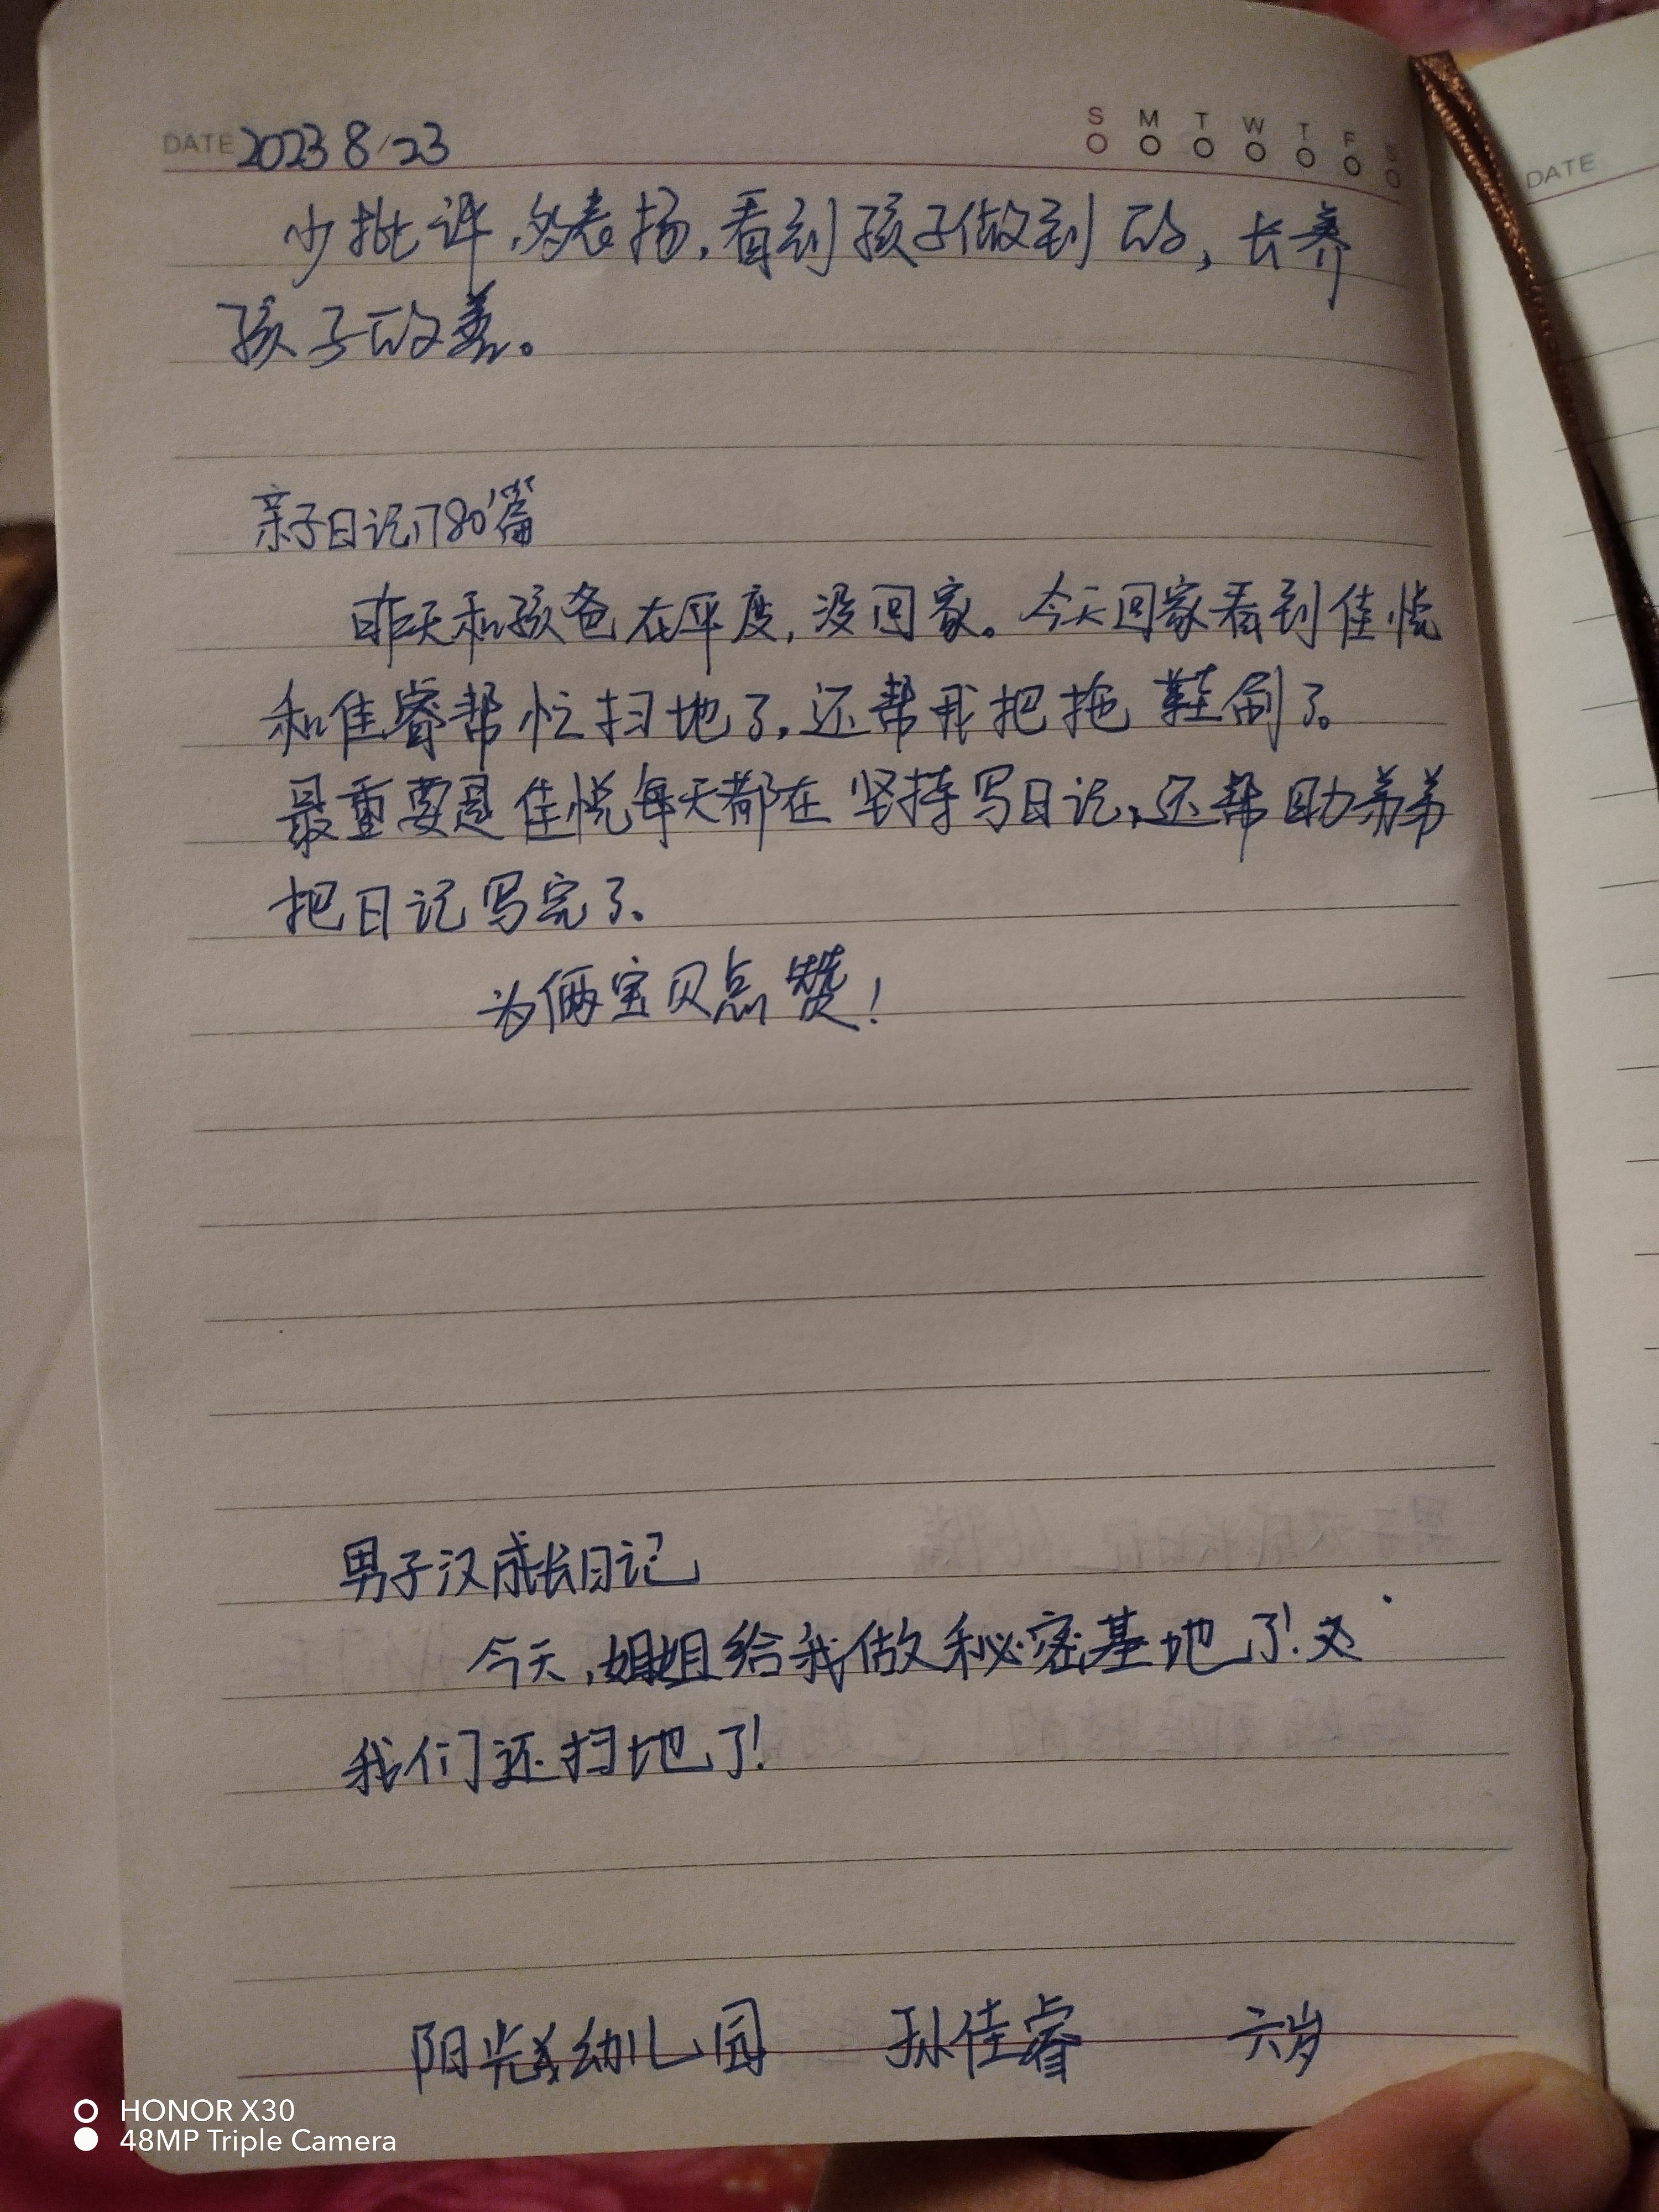 DATE 2023 8/23
S M T W T F S
少批评,多表扬,看到孩子做到的,长养
孩子的善。
亲子日记1780篇
昨天和孩爸在平度,没回家。今天回家看到佳悦
和佳睿帮忙扫地了,还帮我把拖鞋刷了。
最重要是佳悦每天都在坚持写日记,还帮助弟弟
把日记写完了。
为俩宝贝点赞!
男子汉成长日记
今天,姐姐给我做秘密基地了!
我们还扫地了!
阳光幼儿园 孙佳睿 六岁
DATE
HONOR X30
48MP Triple Camera